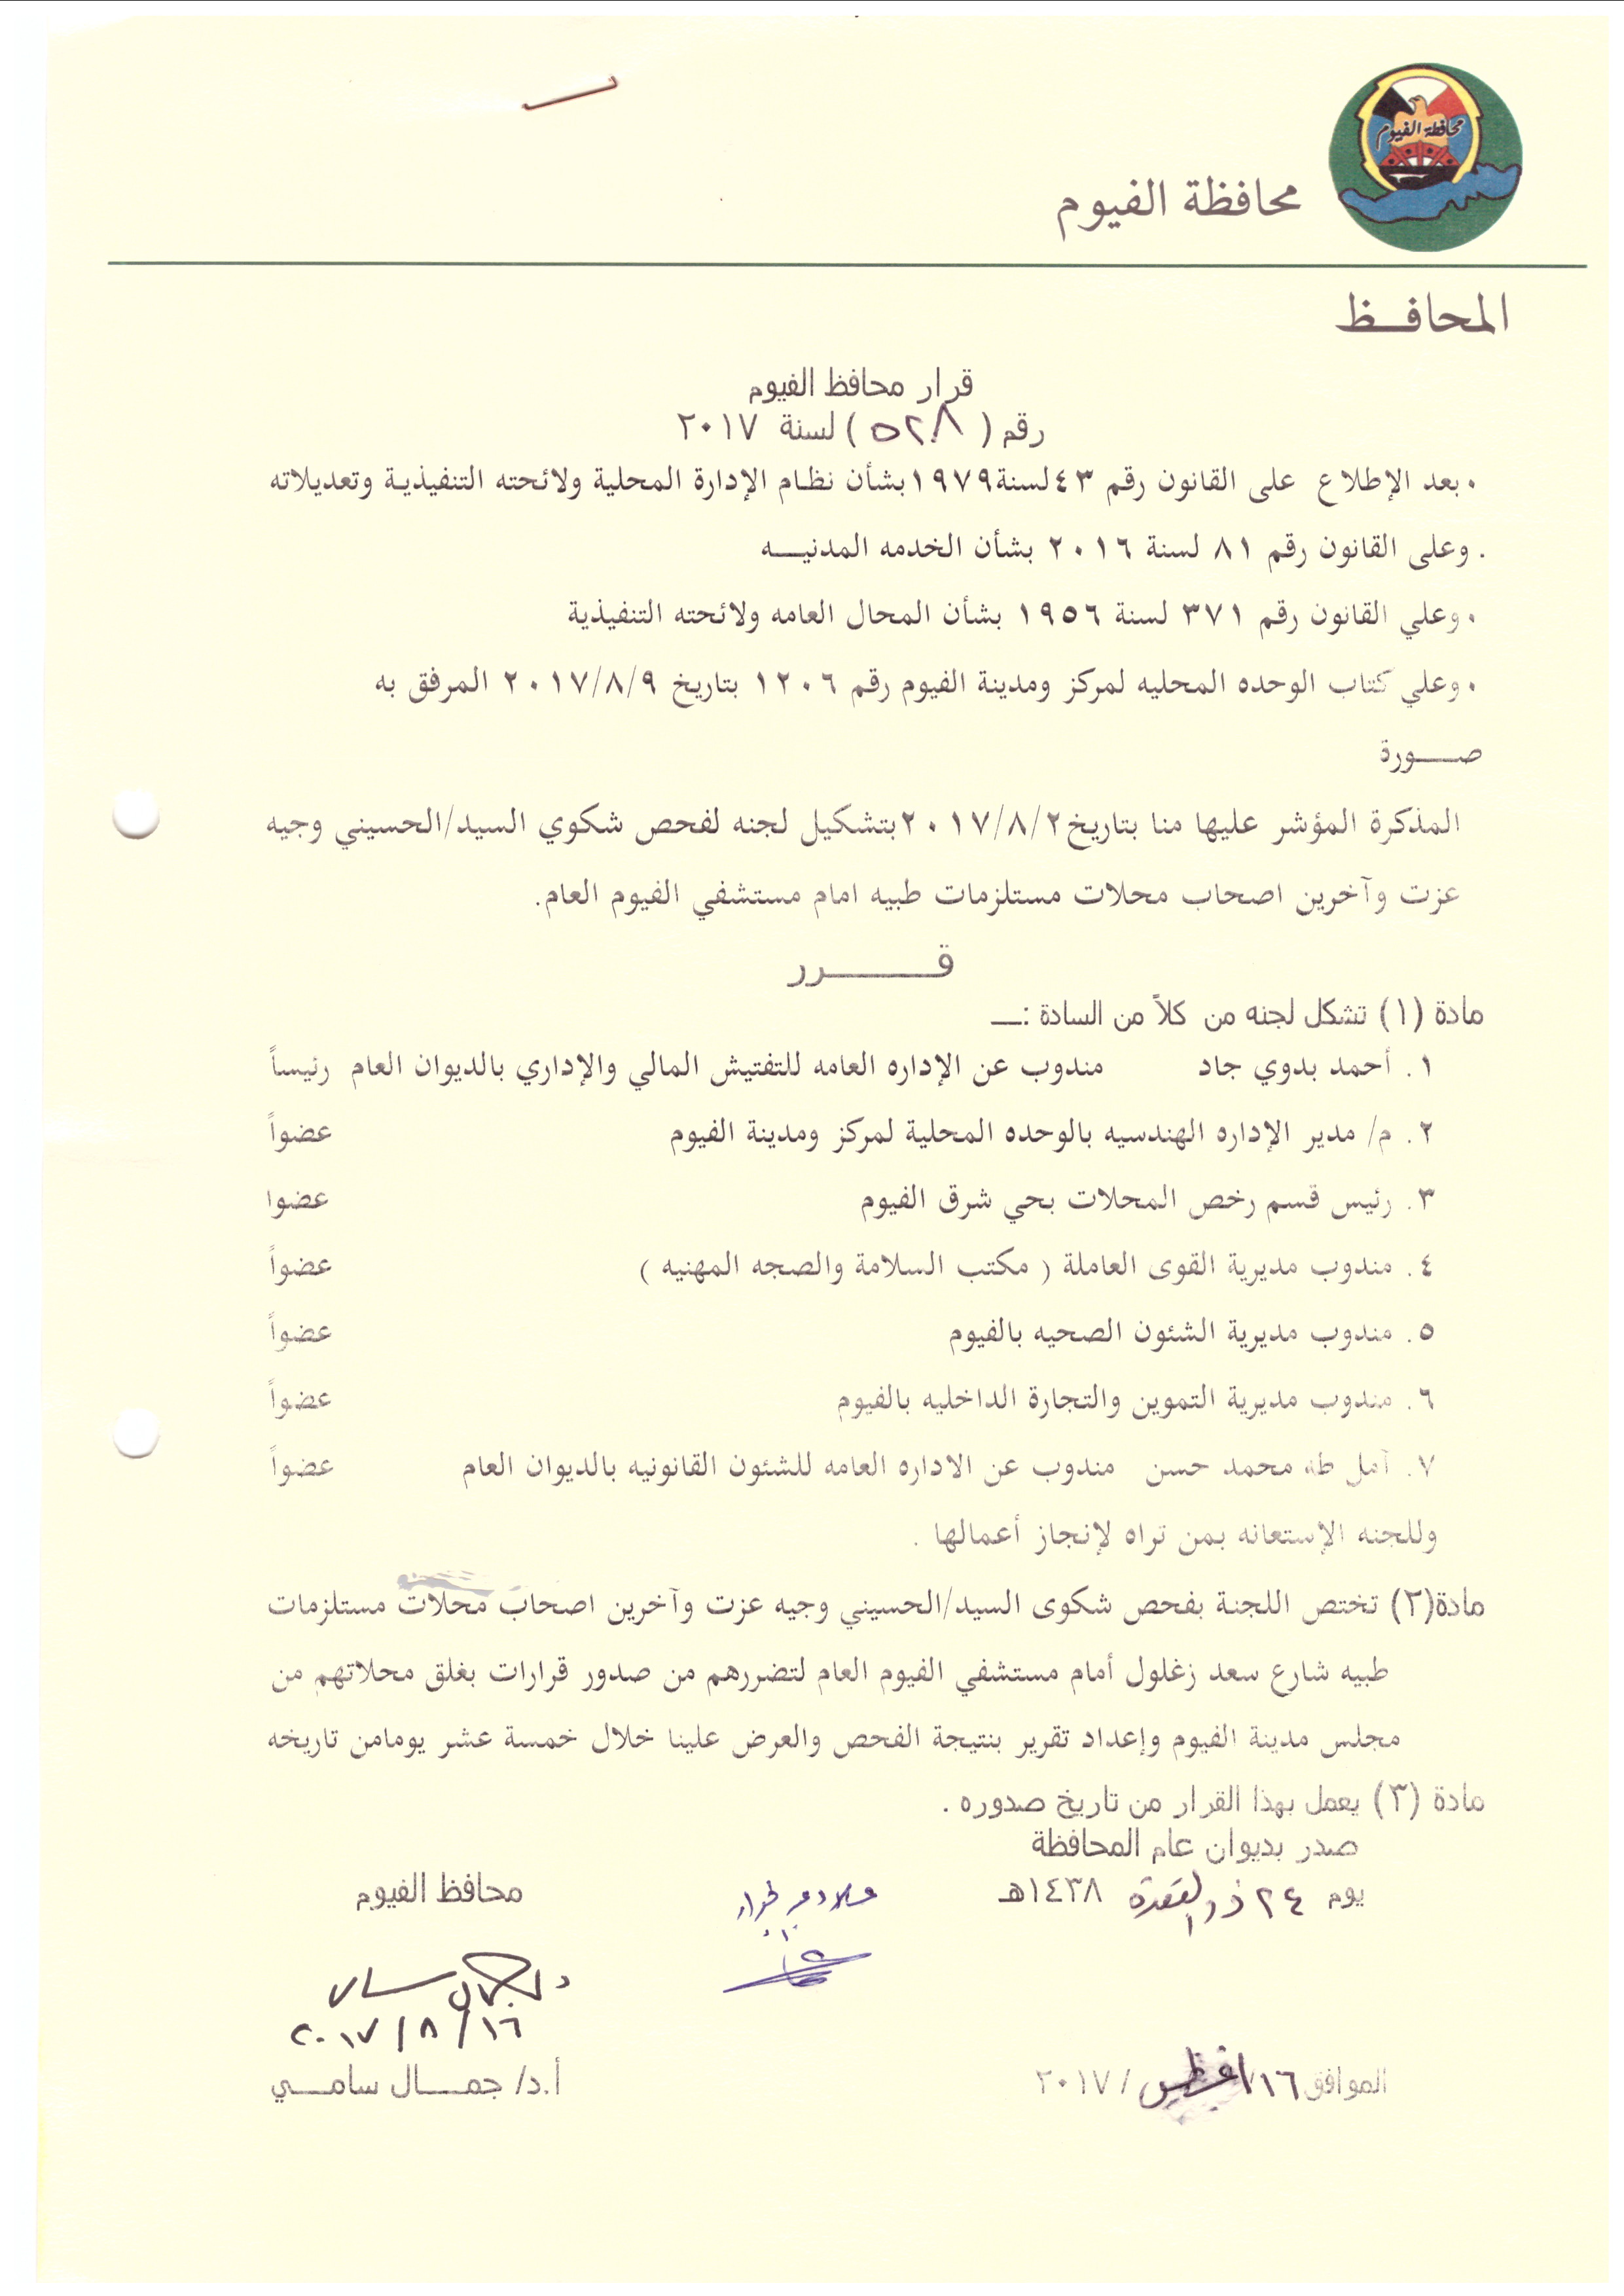 محافظة الفيوم
محافظة الفيوم
المحافــظ
قرار محافظ الفيوم
رقم ( ٥٢٨ ) لسنة ٢٠١٧
• بعد الإطلاع على القانون رقم ٤٣ لسنة ١٩٧٩ بشأن نظام الإدارة المحلية ولائحته التنفيذية وتعديلاته
. وعلى القانون رقم ٨١ لسنة ٢٠١٦ بشأن الخدمه المدنيـــه
• وعلي القانون رقم ٣٧١ لسنة ١٩٥٦ بشأن المحال العامه ولائحته التنفيذية
• وعلي كتاب الوحده المحليه لمركز ومدينة الفيوم رقم ١٢٠٦ بتاريخ ٢٠١٧/٨/٩ المرفق به
صـــورة
المذكرة المؤشر عليها منا بتاريخ ٢٠١٧/٨/٢ بتشكيل لجنه لفحص شكوي السيد/الحسيني وجيه
عزت وآخرين اصحاب محلات مستلزمات طبيه امام مستشفي الفيوم العام.
قــــــــرر
مادة (١) تشكل لجنه من كلاً من السادة :ــ
١. أحمد بدوي جاد مندوب عن الإداره العامه للتفتيش المالي والإداري بالديوان العام رئيساً
٢. م/ مدير الإداره الهندسيه بالوحده المحلية لمركز ومدينة الفيوم عضواً
٣. رئيس قسم رخص المحلات بحي شرق الفيوم عضوا
٤. مندوب مديرية القوى العاملة ( مكتب السلامة والصجه المهنيه ) عضواً
٥. مندوب مديرية الشئون الصحيه بالفيوم عضواً
٦. مندوب مديرية التموين والتجارة الداخليه بالفيوم عضواً
٧. آمل طه محمد حسن مندوب عن الاداره العامه للشئون القانونيه بالديوان العام عضواً
وللجنه الإستعانه بمن تراه لإنجاز أعمالها .
مادة(٢) تختص اللجنة بفحص شكوى السيد/الحسيني وجيه عزت وآخرين اصحاب محلات مستلزمات
طبيه شارع سعد زغلول أمام مستشفي الفيوم العام لتضررهم من صدور قرارات بغلق محلاتهم من
مجلس مدينة الفيوم وإعداد تقرير بنتيجة الفحص والعرض علينا خلال خمسة عشر يومامن تاريخه
مادة (٣) يعمل بهذا القرار من تاريخ صدوره .
صدر بديوان عام المحافظة
يوم ٢٤ ذو القعدة ١٤٣٨هـ
محافظ الفيوم
د. جمال سامى
٢٠١٧/٨/١٦
الموافق ١٦/ اغسطس / ٢٠١٧
أ.د/ جمـــال سامـــي